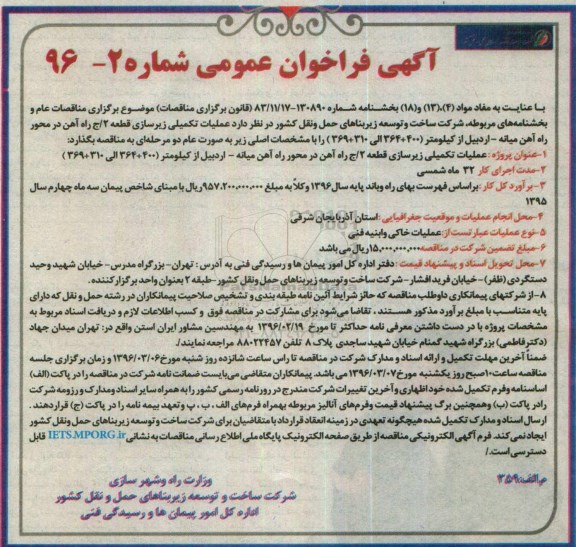 آگهی فراخوان عمومی شماره ۲- ۹۶
با عنایت به مفاد مواد (۴)،(۱۳) و(۱۸) بخشنامه شماره ۱۳۰۸۹۰-۸۳/۱۱/۱۷ (قانون برگزاری مناقصات) موضوع برگزاری مناقصات عام و
بخشنامه‌های مربوطه، شرکت ساخت و توسعه زیربناهای حمل ونقل کشور در نظر دارد عملیات تکمیلی زیرسازی قطعه ۲/ج راه آهن در محور
راه آهن میانه - اردبیل از کیلومتر (۴۰۰+۳۶۴ الی ۳۱۰+۳۶۹) را با مشخصات اصلی زیر به صورت عام دو مرحله‌ای به مناقصه بگذارد:
۱-عنوان پروژه: عملیات تکمیلی زیرسازی قطعه ۲/ج راه آهن در محور راه آهن میانه - اردبیل از کیلومتر (۴۰۰+۳۶۴ الی ۳۱۰+۳۶۹)
۲-مدت اجرای کار ۳۲ ماه شمسی
۳-برآورد کل کار: براساس فهرست بهای راه وباند پایه سال۱۳۹۶ وکلاً به مبلغ ۹۵۷،۲۰۰،۰۰۰،۰۰۰ریال با مبنای شاخص پیمان سه ماه چهارم سال
۱۳۹۵
۴-محل انجام عملیات و موقعیت جغرافیایی: استان آذربایجان شرقی
۵-نوع عملیات عبارتست از: عملیات خاکی وابنیه فنی
۶-مبلغ تضمین شرکت در مناقصه: ۱۵،۰۰۰،۰۰۰،۰۰۰ریال می باشد
۷-محل تحویل اسناد و پیشنهاد قیمت: دفتر اداره کل امور پیمان ها و رسیدگی فنی به آدرس: تهران-بزرگراه مدرس-خیابان شهید وحید
دستگردی (ظفر)-خیابان فریدافشار-شرکت ساخت و توسعه زیربناهای حمل ونقل کشور-طبقه ۲ بعنوان واحد برگزارکننده.
۸-از شرکتهای پیمانکاری داوطلب مناقصه که حائز شرایط آئین نامه طبقه بندی و تشخیص صلاحیت پیمانکاران در رشته حمل و نقل که دارای
پایه متناسب با مبلغ برآورد مذکور هستند، تقاضا می‌شود برای مشارکت در مناقصه فوق و کسب اطلاعات لازم و دریافت اسناد مربوط به
مشخصات پروژه با در دست داشتن معرفی نامه حداکثر تا مورخ ۱۳۹۶/۰۲/۱۹ به مهندسین مشاور ایران استن واقع در: تهران میدان جهاد
(دکترفاطمی) بزرگراه شهید گمنام خیابان شهید ساجدی پلاک ۸ تلفن ۸۸۰۲۲۴۵۷ مراجعه نمایند/.
ضمناً آخرین مهلت تکمیل و ارائه اسناد و مدارک شرکت در مناقصه تا راس ساعت شانزده روز شنبه مورخ۱۳۹۶/۰۳/۰۶ و زمان برگزاری جلسه
مناقصه ساعت۱۰صبح روز یکشنبه مورخ۱۳۹۶/۰۳/۰۷ می باشد. پیمانکاران متقاضی می‌بایست ضمانت نامه شرکت در مناقصه را در پاکت (الف)
اساسنامه وفرم تکمیل شده خوداظهاری و آخرین تغییرات شرکت مندرج در روزنامه رسمی کشور را به همراه سایر اسناد ومدارک و رزومه شرکت
رادر پاکت (ب) وهمچنین برگ پیشنهاد قیمت وفرم‌های آنالیز مربوطه بهمراه فرم‌های الف، ب، پ وتعهد بیمه نامه را در پاکت (ج) قراردهند.
ارسال اسناد و مدارک تکمیل شده هیچگونه تعهدی در زمینه انعقاد قرارداد با متقاضیان برای شرکت ساخت و توسعه زیربناهای حمل ونقل کشور
ایجاد نمی کند. فرم آگهی الکترونیکی مناقصه از طریق صفحه الکترونیک پایگاه ملی اطلاع رسانی مناقصات به نشانی IETS.MPORG.ir قابل
دسترسی است./
م.الف:۳۵۹
وزارت راه وشهر سازی
شرکت ساخت و توسعه زیربناهای حمل و نقل کشور
اداره کل امور پیمان ها و رسیدگی فنی